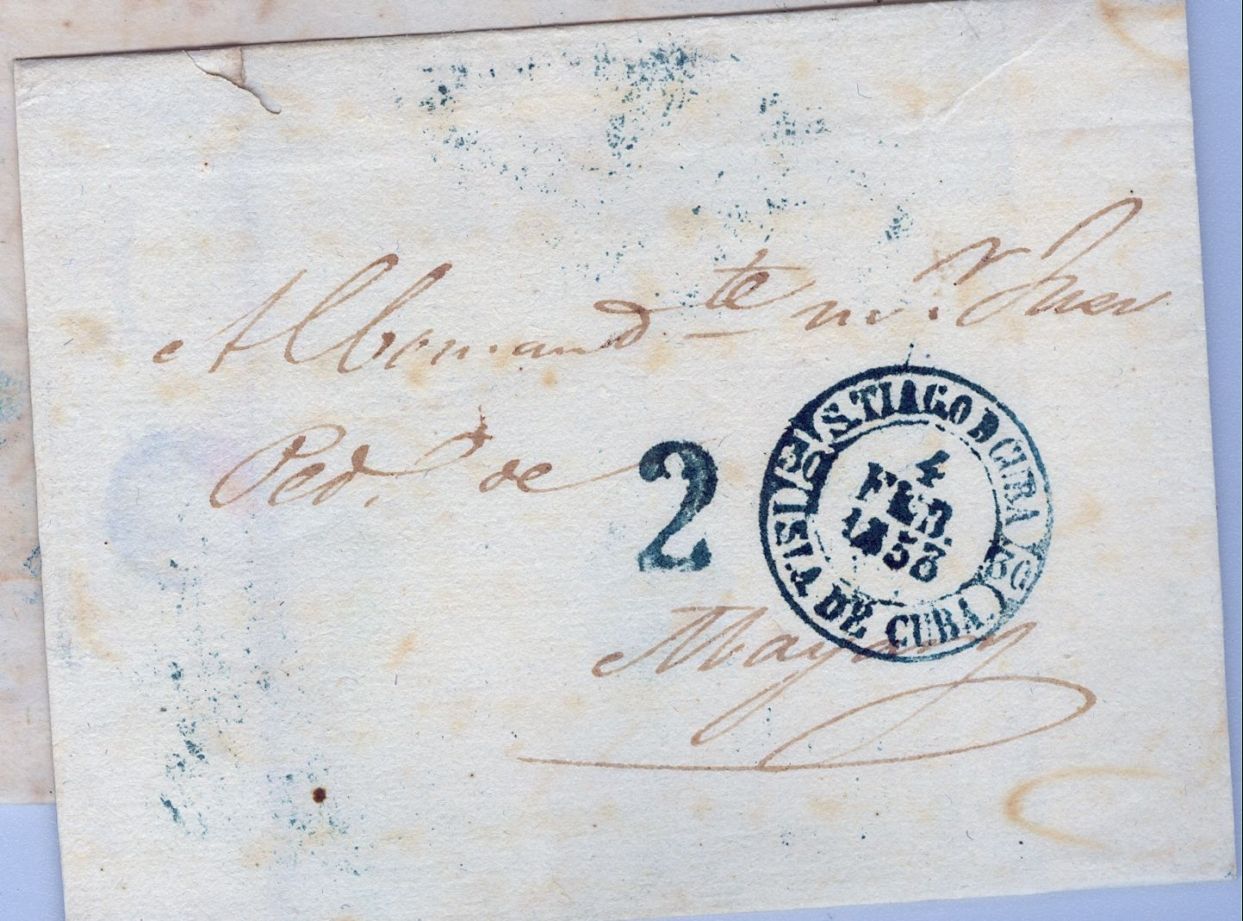 Al Comand.te m.r Juez
Ped.o de
2
S. TIAGO D CUBA
4
FEB
1853
ISLA DE CUBA
Mayary